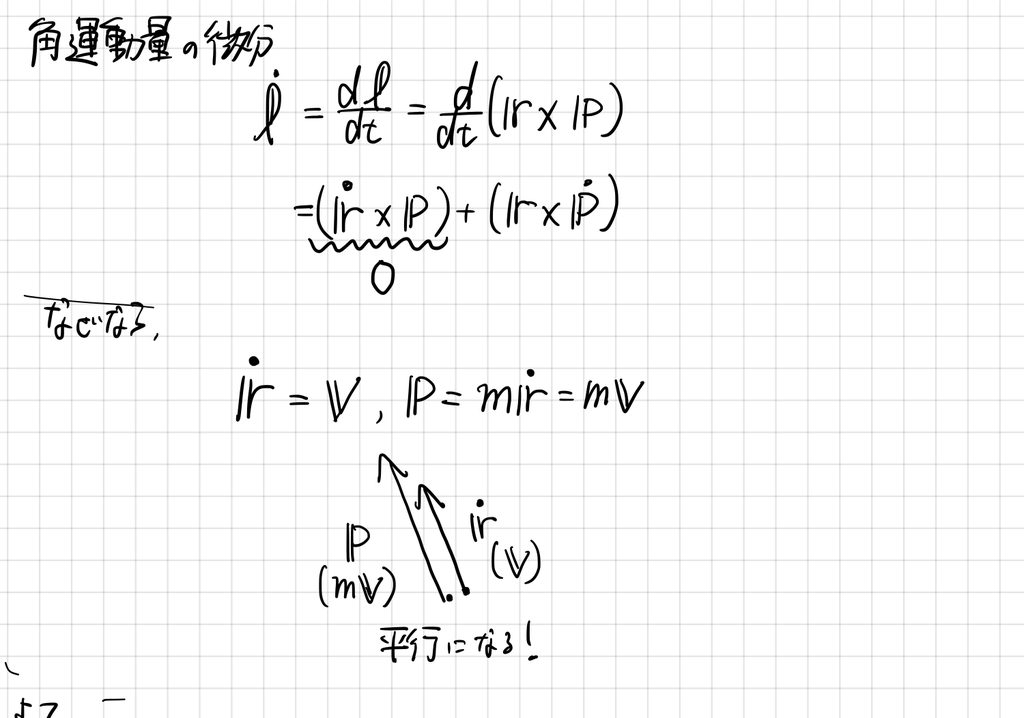 角運動量の微分
l̇ = dl/dt = d/dt (𝕣 × ℙ)
= (𝕣̇ × ℙ) + (𝕣 × ℙ̇)
0
なぜなら,
𝕣̇ = 𝕍, ℙ = m𝕣̇ = m𝕍
ℙ 𝕣̇
(m𝕍) (𝕍)
平行になる!